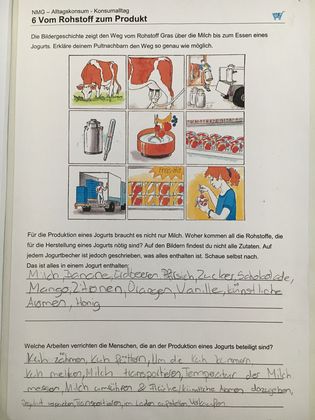 NMG – Alltagskonsum - Konsumalltag
6 Vom Rohstoff zum Produkt
Die Bildergeschichte zeigt den Weg vom Rohstoff Gras über die Milch bis zum Essen eines
Jogurts. Erkläre deinem Pultnachbarn den Weg so genau wie möglich.
Für die Produktion eines Jogurts braucht es nicht nur Milch. Woher kommen all die Rohstoffe, die
für die Herstellung eines Jogurts nötig sind? Auf den Bildern findest du nicht alle Zutaten. Auf
jedem Jogurtbecher ist jedoch geschrieben, was alles enthalten ist. Schaue selbst nach.
Das ist alles in einem Jogurt enthalten:
Milch, Banane, Erdbeeren, Pfirsich, Zucker, Schokolade,
Mango, Zitonen, Orangen, Vanille, künstliche
Aromen, Honig
Welche Arbeiten verrichten die Menschen, die an der Produktion eines Jogurts beteiligt sind?
Kuh zähmen, Kuh füttern, Um die Kuh kümmern,
Kuh melken, Milch transportieren, Temperatur der Milch
messen, Milch umrühren & Früchte/künstliche Aromen dazugeben,
transportieren, im Laden verkaufen